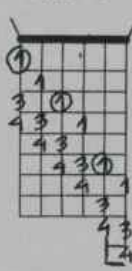 1
1
3 1
4 3 1
4 3
4 3 1
4 1
3
4 3
4